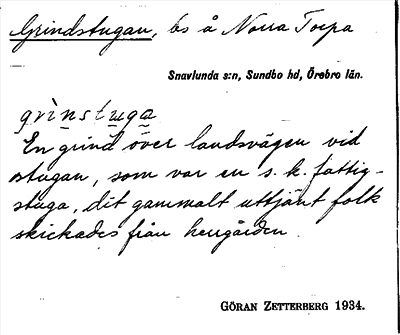 Grindstugan, bs å Norra Torpa
Snavlunda s:n, Sundbo hd, Örebro län.
grìnstuga
En grind över landsvägen vid
stugan, som var en s. k. fattig-
stuga, dit gammalt uttjänt folk
skickades från herrgården.
GÖRAN ZETTERBERG 1934.